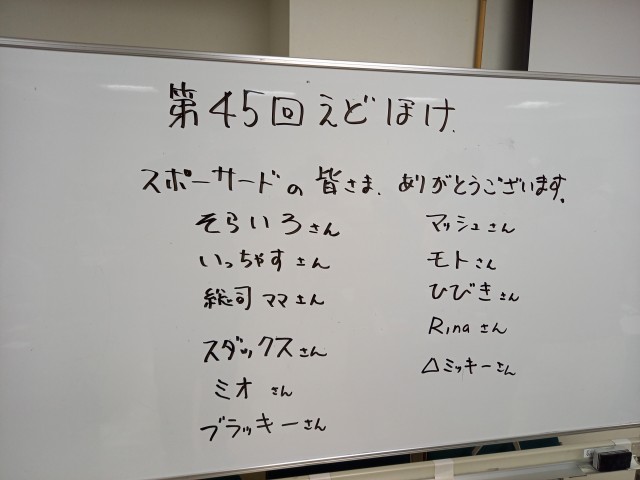 第45回えどぽけ.
スポーサードの皆さま、ありがとうございます。
そらいろさん
いっちゃすさん
総司ママさん
スダックスさん
ミオさん
ブラッキーさん
マッシュさん
モトさん
ひびきさん
Rinaさん
△ミッキーさん